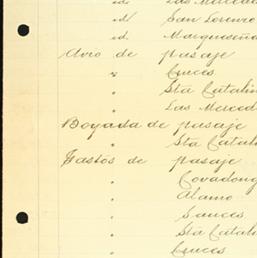 id/ Las Mercede
id/ San Lorenzo
id. Marqueseña
de pasaje
" Cruces
" Sta Catalin
" Las Merced
Boyada de pasaje
" Sta Catali
Gastos de pasaje
" Covadong
" Alamo
" Sauces
" Sta Catali
" Cruces